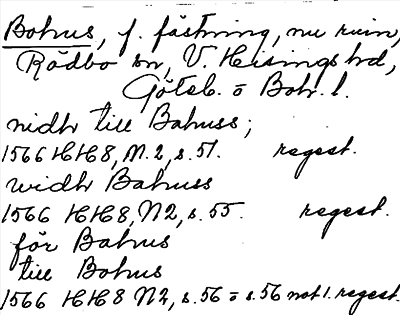 Bohus, f. fästning, nu ruin,
Rödbo sn, V. Hisings hd,
Göteb. o Boh. l.
widh till Bahuss;
1566 HH8, N.2, s. 51. regest.
widh Bahuss
1566 HH8, N2, s. 55. regest.
för Bahus
till Bohus
1566 HH8 N2, s. 56 o s. 56 not 1. regest.